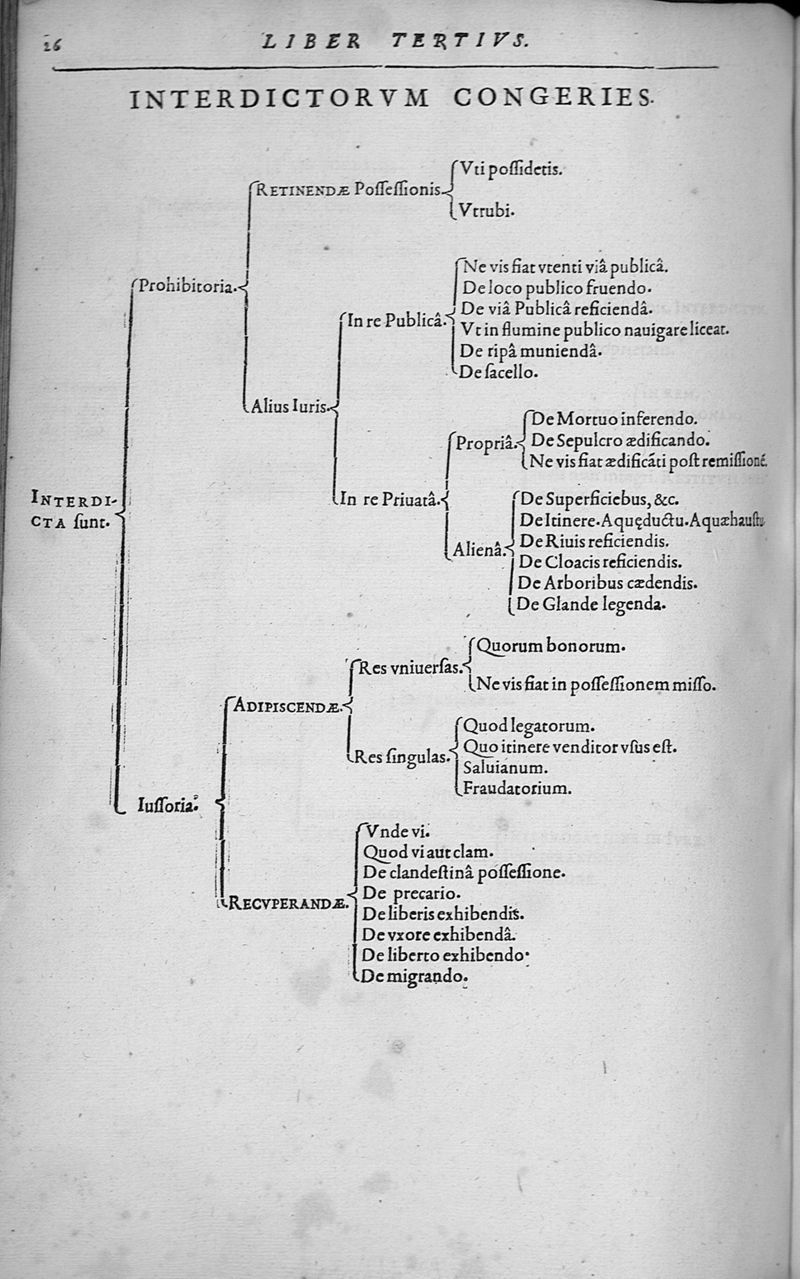 26
LIBER TERTIVS.
INTERDICTORVM CONGERIES.
INTERDI-
CTA ſunt.
Prohibitoria.
RETINENDÆ Poſſeſſionis.
Vti poſſidetis.
Vtrubi.
Alius Iuris.
In re Publicâ.
Ne vis fiat vtenti viâ publicâ.
De loco publico fruendo.
De viâ Publicâ reficiendâ.
Vt in flumine publico nauigare liceat.
De ripâ muniendâ.
De ſacello.
In re Priuatâ.
Propriâ.
De Mortuo inferendo.
De Sepulcro ædificando.
Ne vis fiat ædificāti poſt remiſſionē.
Alienâ.
De Superficiebus, &c.
De Itinere. Aquęductu. Aquæhauſtu
De Riuis reficiendis.
De Cloacis reficiendis.
De Arboribus cædendis.
De Glande legenda.
Iuſſoria.
ADIPISCENDÆ.
Res vniuerſas.
Quorum bonorum.
Ne vis fiat in poſſeſſionem miſſo.
Res ſingulas.
Quod legatorum.
Quo itinere venditor vſus eſt.
Saluianum.
Fraudatorium.
RECVPERANDÆ.
Vnde vi.
Quod vi aut clam.
De clandeſtinâ poſſeſſione.
De precario.
De liberis exhibendis.
De vxore exhibendâ.
De liberto exhibendo.
De migrando.